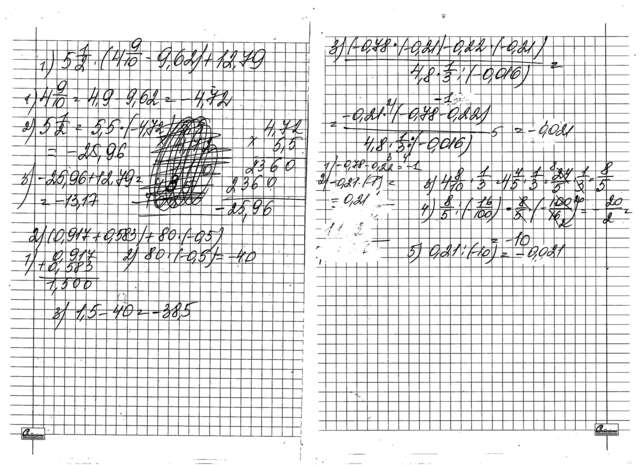 1) 5 1/2 · (4 9/10 - 9,62) + 12,79
1) 4 9/10 = 4,9 - 9,62 = -4,72
2) 5 1/2 = 5,5 · (-4,72)
= -25,96
4,72
× 5,5
2360
2360
-25,96
3) -25,96 + 12,79 =
= -13,17
2) (0,917 + 0,583) + 80 · (-0,5)
1) 0,917
+ 0,583
1,500
2) 80 · (-0,5) = -40
3) 1,5 - 40 = -38,5
3) (-0,78 · (-0,21) - 0,22 · (-0,21)) / (4,8 · 1/3 : (-0,016)) =
= -0,21 · (-0,78 - 0,22) / 4,8 · 1/3 · (-0,016) = -0,021
1) -0,78 - 0,22 = -1
2) -0,21 · (-1) =
= 0,21
3) 4 8/10 · 1/3 = 4 4/5 · 1/3 = 24/5 · 1/3 = 8/5
4) 8/5 : (16/100) = 8/5 · (-100/16) = -20/2 =
= -10
5) 0,21 : (-10) = -0,021